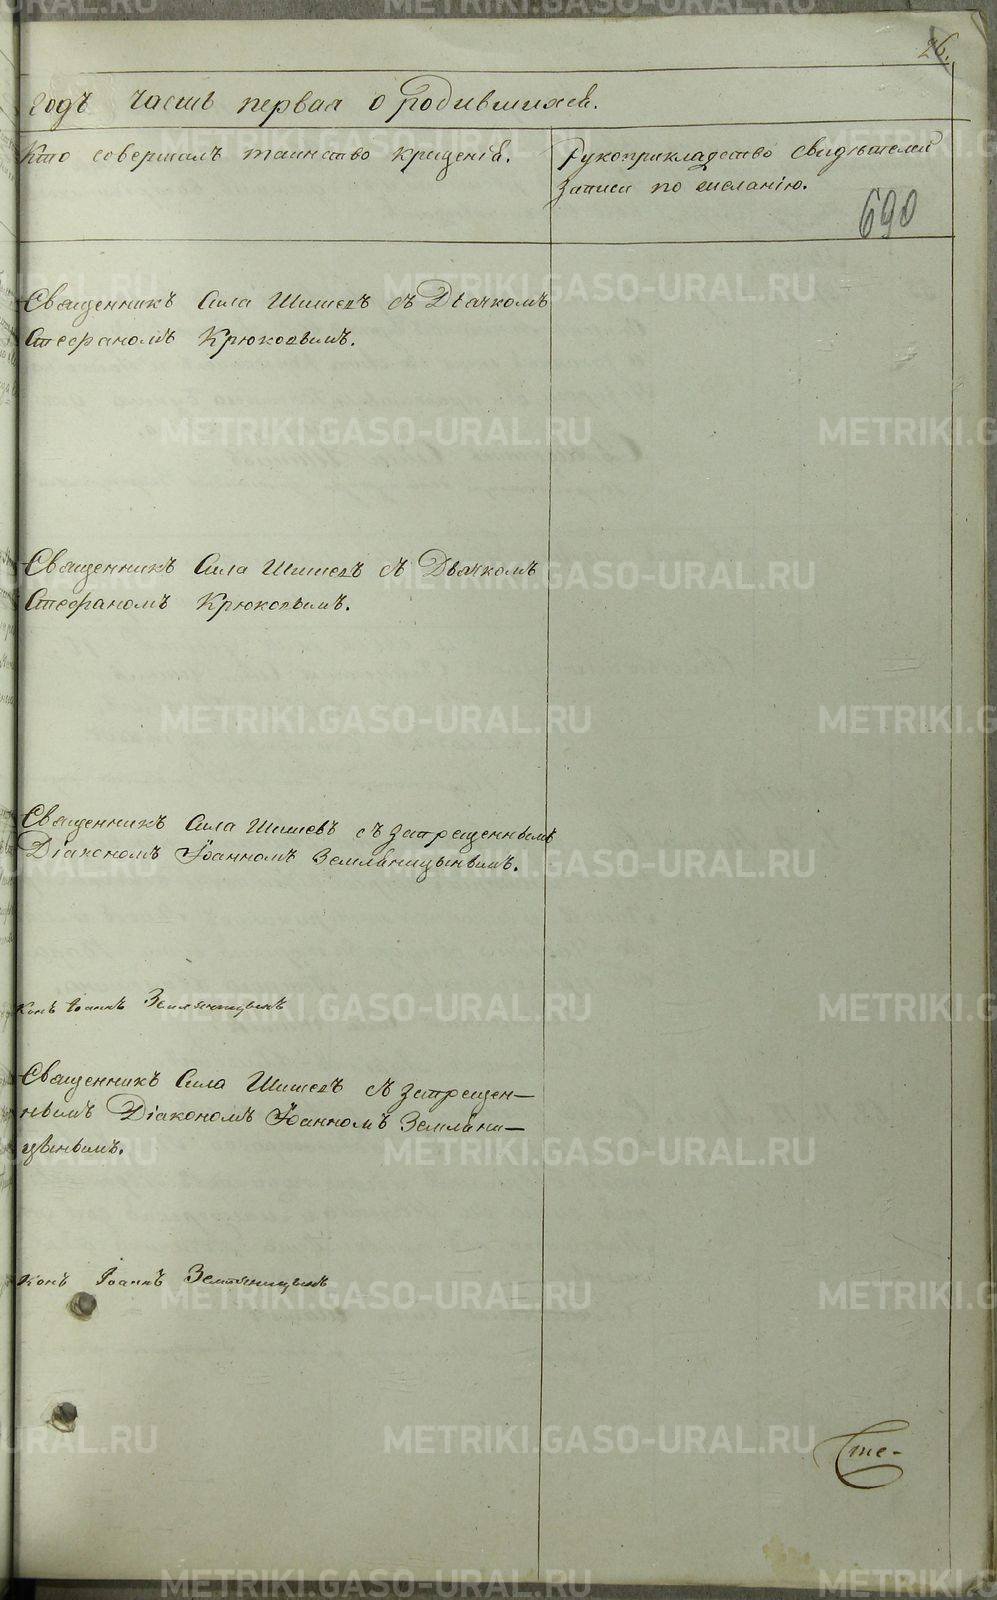 26.
годъ часть первая о родившихся.
Кто совершалъ таинство крещенія.
Рукоприкладство свидѣтелей
записи по желанію.
690
Священникъ Сила Шишевъ съ Дьячкомъ
Стефаномъ Крюковымъ.
Священникъ Сила Шишевъ съ Дьячкомъ
Стефаномъ Крюковымъ.
Священникъ Сила Шишевъ съ запрещеннымъ
Діакономъ Іоанномъ Земляницынымъ.
конъ Іоаннъ Земляницынъ
Священникъ Сила Шишевъ съ запрещен-
нымъ Діакономъ Іоанномъ Земляни-
цынымъ.
конъ Іоаннъ Земляницынъ
Сте-
METRIKI.GASO-URAL.RU